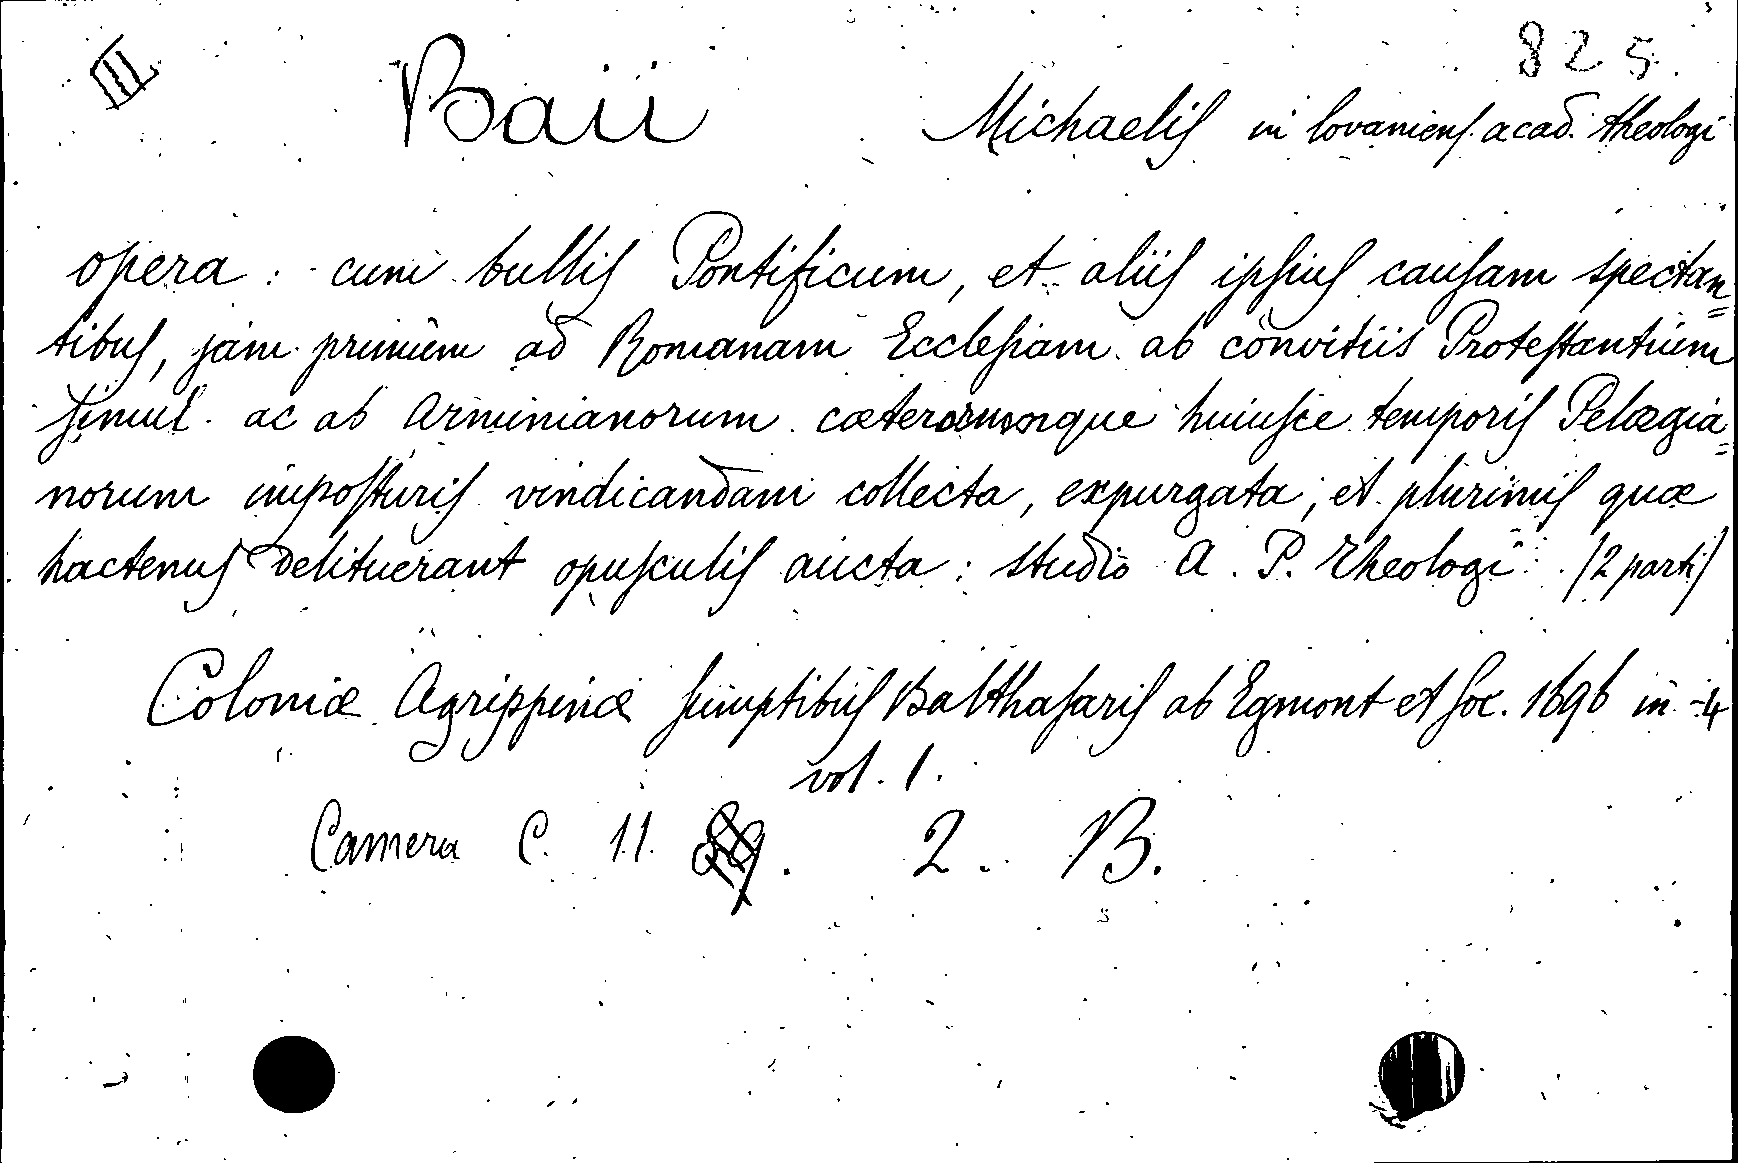 III
825.
Baii Michaelis in lovaniens. acad. theologi
opera: cum bullis Pontificum, et aliis ipsius causam spectan=
tibus, jam primùm ad Romanam Ecclesiam ab convitiis Protestantium
simul ac ab Arminianorum cæterorumque huiusce temporis Pelagia=
norum imposturis vindicandam collecta, expurgata, et plurimis quæ
hactenus delituerant opusculis aucta: studio A. P. Theologi (2 parti)
Coloniæ Agrippinæ sumptibus Balthasaris ab Egmont et soc. 1696 in-4
vol. 1.
Camera C. 11. 2. B.